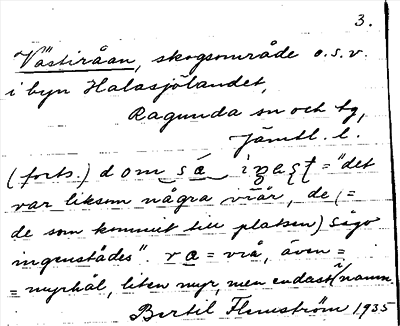 3.
Västiråan, skogsområde o.s.v.
i byn Halasjölandet,
Ragunda sn och tg,
Jämtl. l.
(forts.) dom sá = "det
var liksom några viår, de (=
de som kommit till platsen) sågo
ingenstädes". ræ = viå, även =
= myrhål, liten myr, men endast i namn.
Bertil Flemström 1935